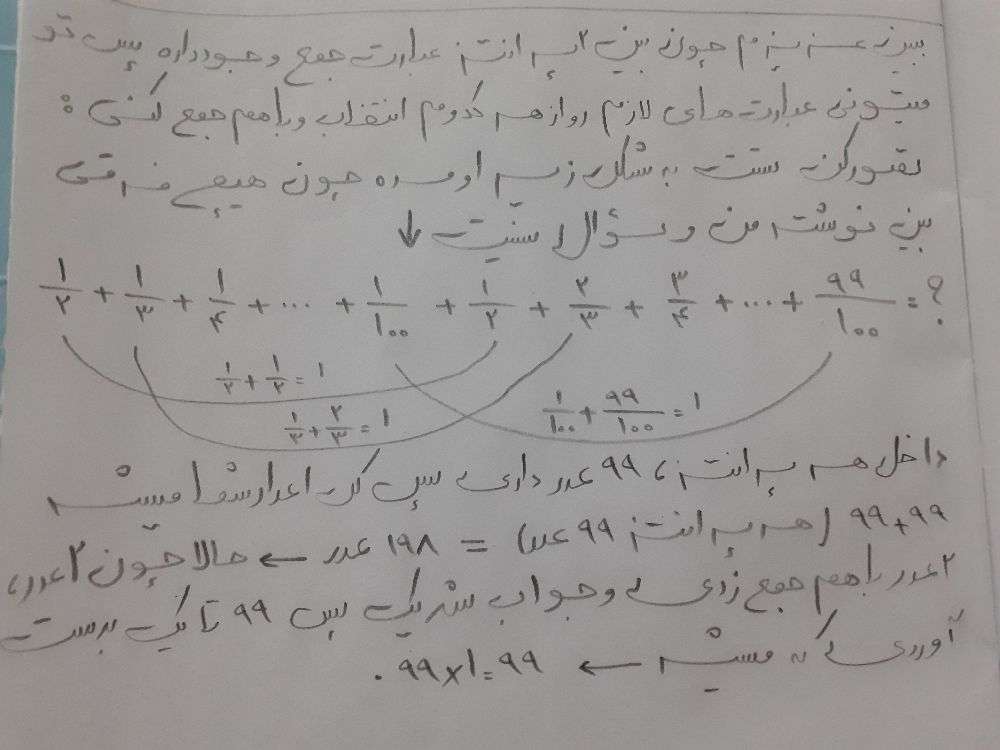 ببین عزیزم چون بین ۲ پرانتز عبارت جمع وجود داره پس تو
میتونی عبارت های لازم رو از هر کدوم انتخاب و باهم جمع کنی :
تصور کن تستت به شکل زیر اومده چون هیچ فرقی
بین نوشته من و سؤال نیست ↓
۱/۲ + ۱/۳ + ۱/۴ + ... + ۱/۱۰۰ + ۱/۲ + ۲/۳ + ۳/۴ + ... + ۹۹/۱۰۰ = ?
۱/۲ + ۱/۲ = ۱
۱/۳ + ۲/۳ = ۱
۱/۱۰۰ + ۹۹/۱۰۰ = ۱
داخل هر پرانتز، ۹۹ عدد داری پس کل اعداد شما میشه
۹۹+۹۹ (هر پرانتز ۹۹ عدد) = ۱۹۸ عدد ← حالا چون ۲ عدد،
۲ عدد باهم جمع زدی و جواب شد یک پس ۹۹ تا یک بدست
آوردی که میشه ← ۹۹×۱=۹۹ .